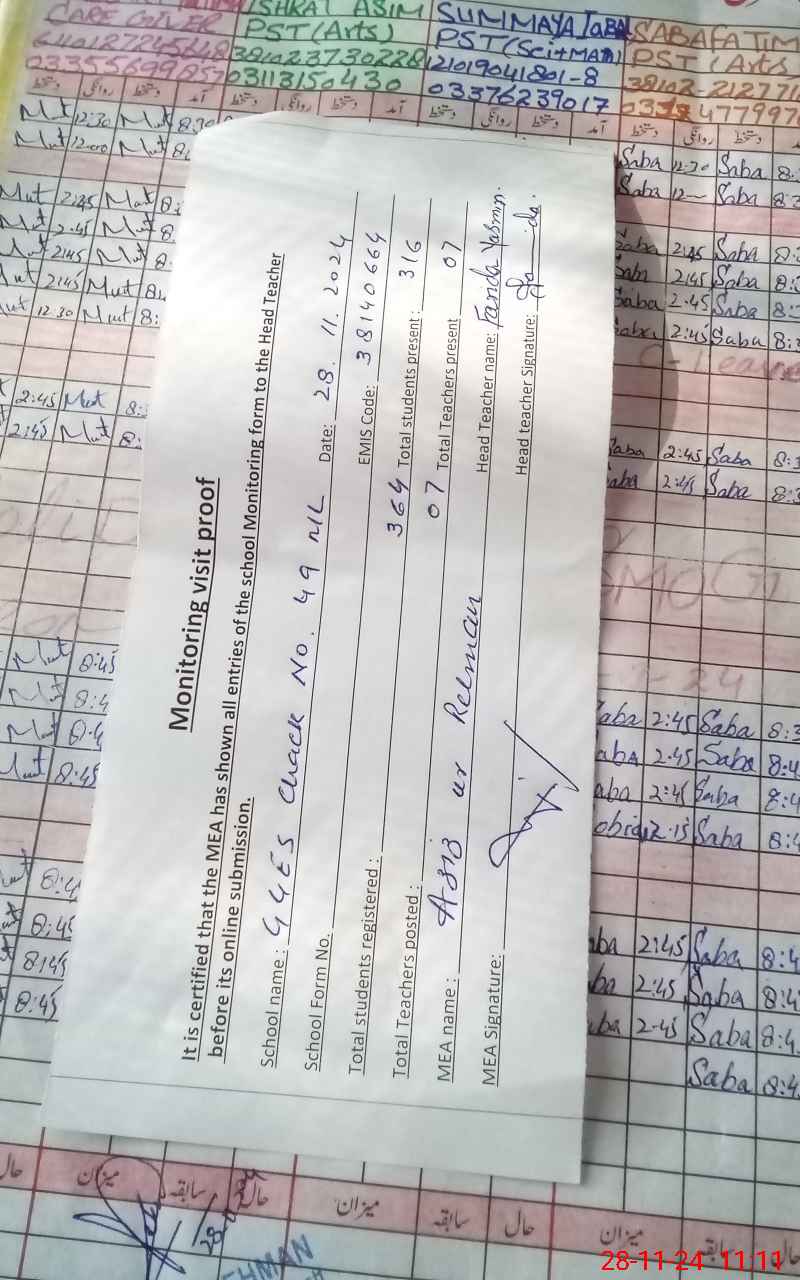 CARE GIVER
ISHRAT ASIM
PST (Arts)
381023730228
03113150430
SUMMAYA IQBAL
PST (Sci+MATH)
121019041801-8
03376239017
SABA FATIM
PST (Arts
38102-2127716
دستخط روانگی دستخط آمد دستخط روانگی دستخط آمد دستخط روانگی دستخط آمد
Mut 12:30 Mut 8:30
Mut 12:00 Mut
Saba 12-30 Saba 8:
Saba 12- Saba 8:
Mut 2:45 Mut 8:
Mut 2:45 Mut 8:
Mut 2:45 Mut 8.
Mut 2:45 Mut
Mut 12:30 Mut 8:
Saba 2:45 Saba 8:
Saba 2:45 Saba 8:
Saba 2:45 Saba 8:
Saba 2:45 Saba 8:3
2:45 Mut 8:
2:45 Mut 8:
Saba 2:45 Saba 8:3
Saba 2:45 Saba 8:3
Monitoring visit proof
It is certified that the MEA has shown all entries of the school Monitoring form to the Head Teacher
before its online submission.
School name : GGES Chack No. 49 M/L Date: 28. 11. 2024
School Form No. EMIS Code: 38140664
Total students registered : 364 Total students present : 316
Total Teachers posted : 07 Total Teachers present 07
MEA name : Asib ur Rehman Head Teacher name: Farida Yasmin.
MEA Signature: Head teacher Signature:
Mut 8:45
Mut 8:4
Mut 8:4
Mut 8:45
aba 2:45 Saba 8:3
aba 2:45 Saba 8:4
aba 2:45 Saba 8:4
2:15 Saba 8:4
8:4
8:45
8:45
8:45
aba 2:45 Saba 8:4
ba 2:45 Saba 8:4
uba 2-45 Saba 8:4
Saba 8:4
حال میزان سابقہ حال میزان سابقہ حال میزان سابقہ حال
EHMAN
28-11-24 11:11